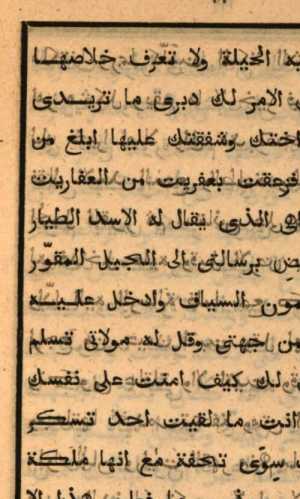 الحيلة ولا تعرف خلاصهـا
الامر لك دبرى ما تريــدى
اختك وشفقتك عليها ابلغ من
فزعقت بعفريت من العفاريت
الذى يقال له الاسد الطيار
برسالتى الى الجبل المقوّر
السياف وادخل عليــه
من جهتى وقل له مولاتى تسلم
لك كيف امنت على نفسك
انت ما لقيت احد تسكر
سوى تحفة مع انها ملكة